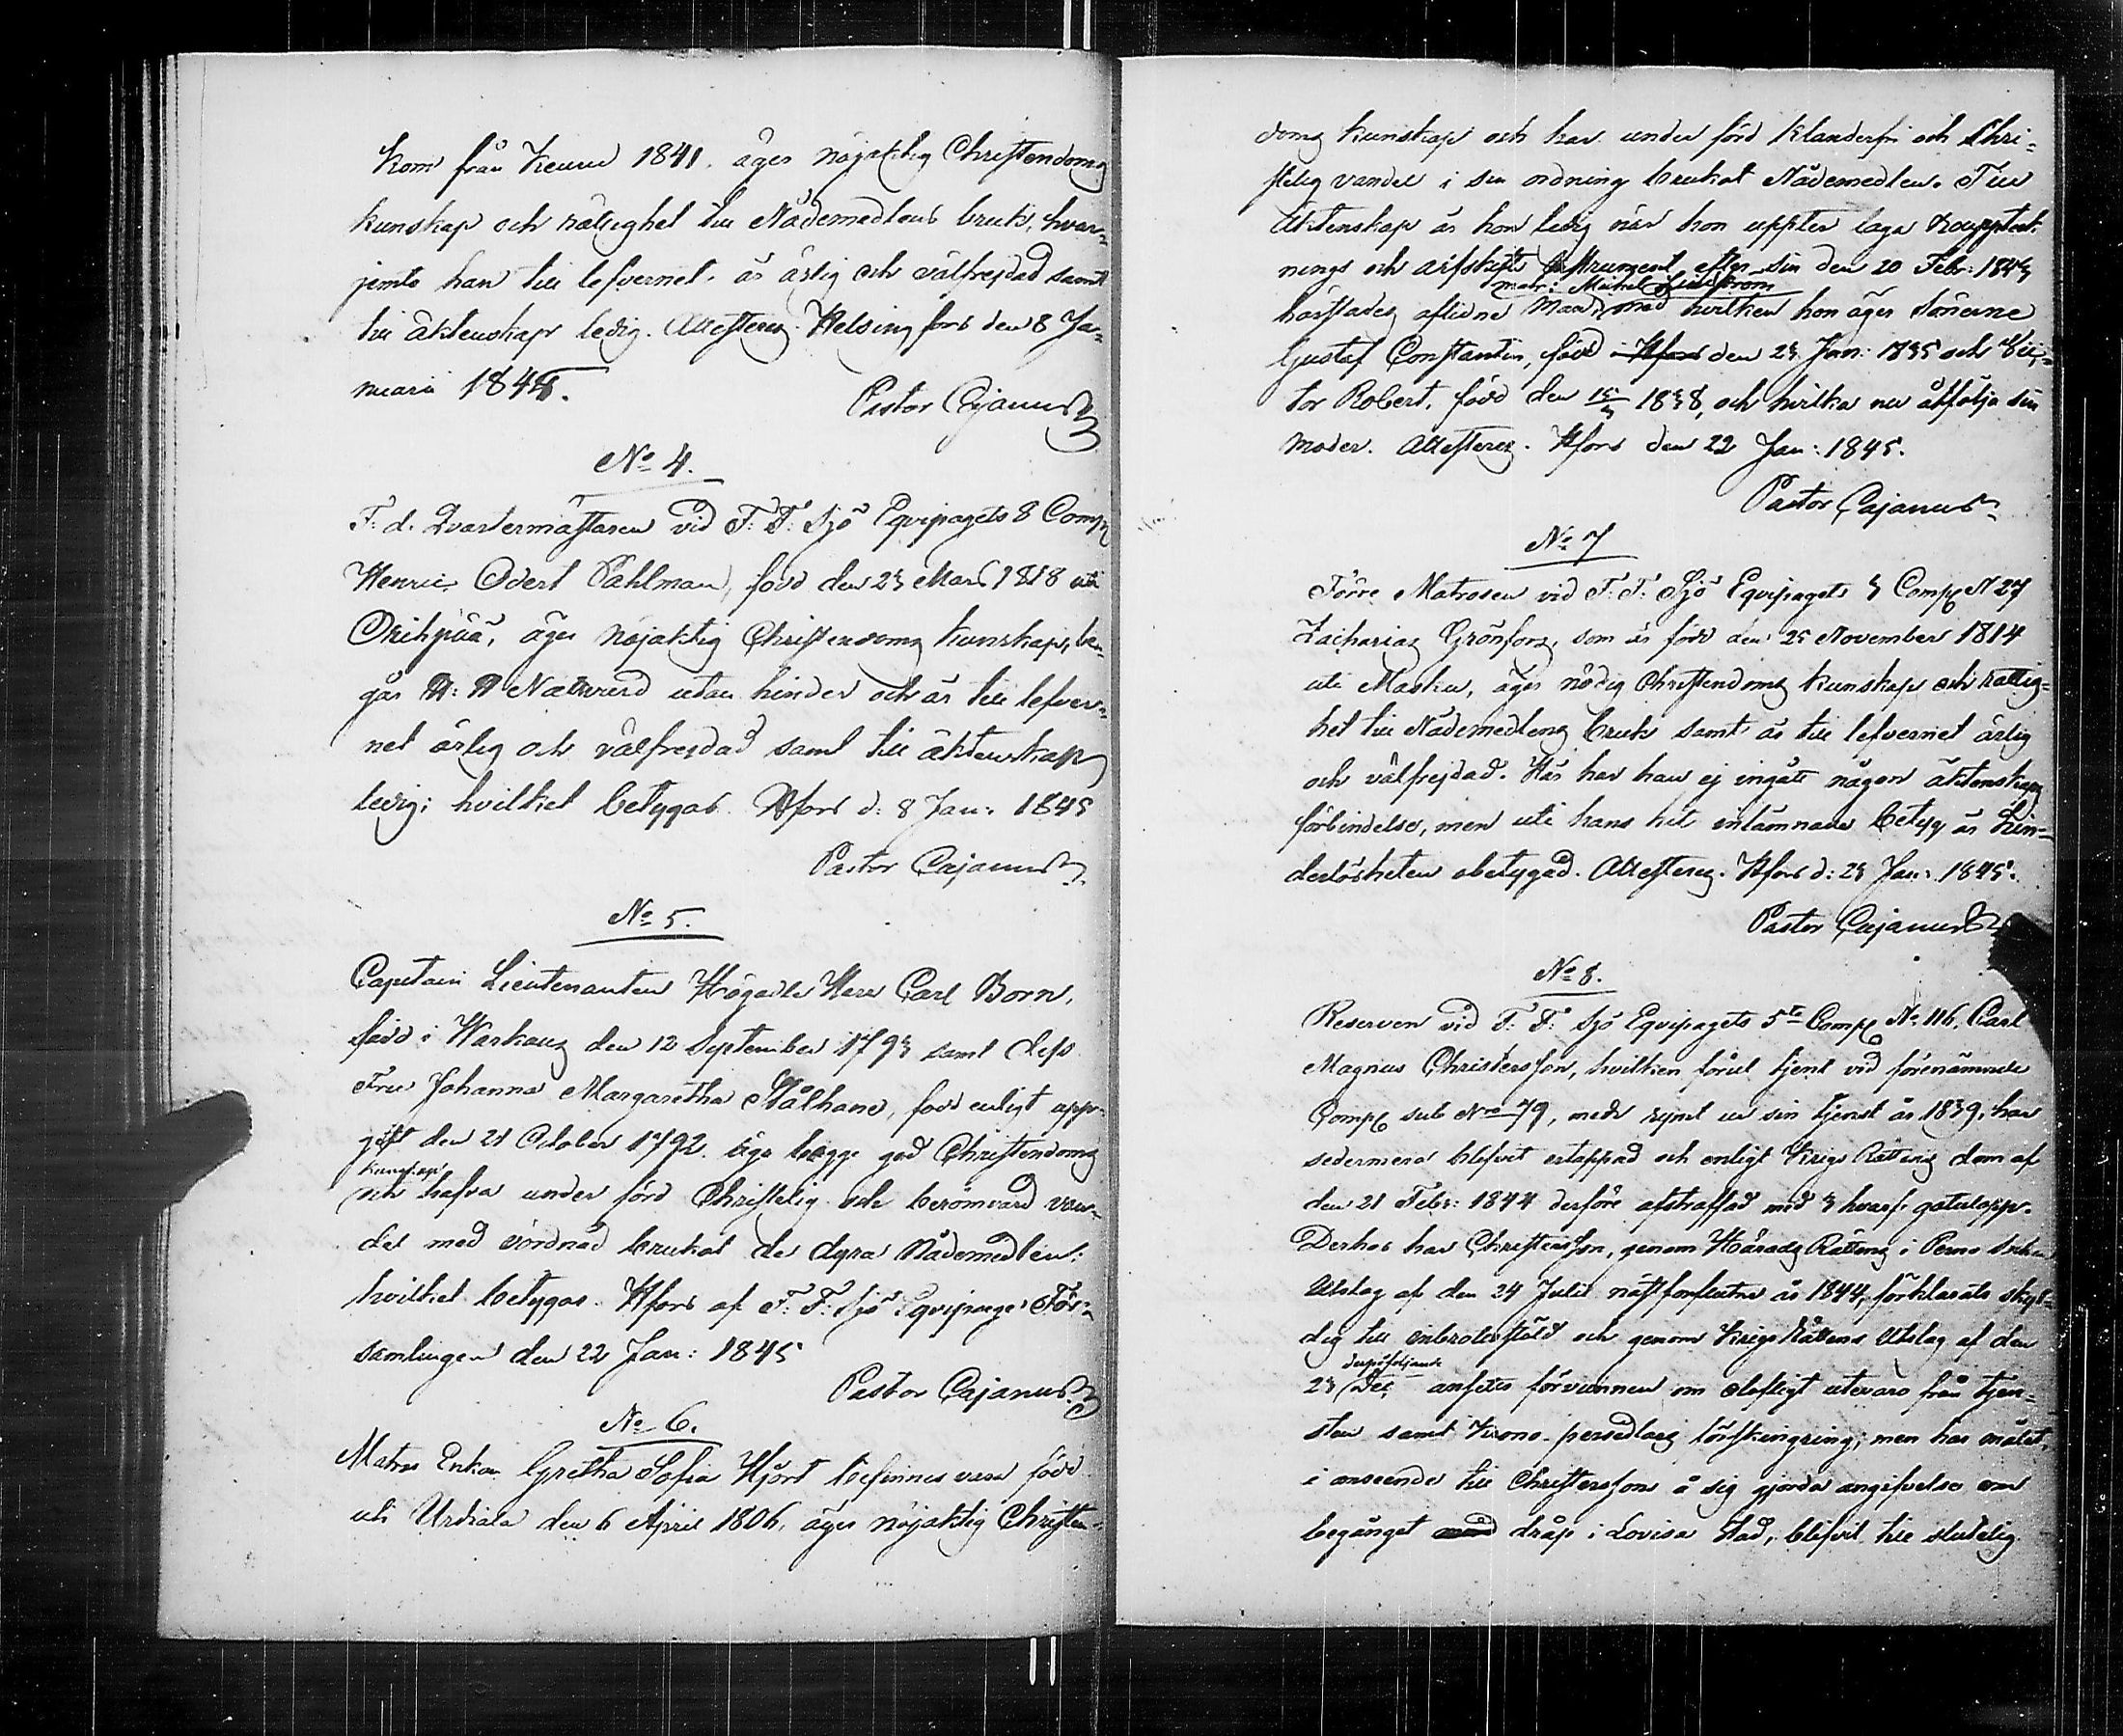 kom från Keuru 1841. äger nöjaktig Christendoms
kunskap och rättighet till Nådemedlens bruk, hvar-
jemte han till lefvernet är ärlig och välfrejdad samt
till äktenskap ledig. Attesteras. Helsingfors den 8 Ja-
nuarii 1845.
Pastor Cajanus
No 4.
F: d. Qvartermästaren vid F: F: Sjö Eqvipagets 8 Comp
Henric Odert Påhlman, född den 23 Mars 1818 uti
Orihpää, äger nöjaktig Christendoms kunskap, be-
går H: H Nattvard utan hinder och är till lefver-
net ärlig och välfrejdad samt till äktenskap
ledig; hvilket betygas. Hfors d: 8 Jan: 1845
Pastor Cajanus
No 5.
Capitain Lieutenanten Högädle Herr Carl Born,
född i Warkaus den 12 September 1793 samt dess
Fru Johanna Margaretha Stålhane, född enligt upp-
gift den 21 October 1792. äga begge god Christendoms
kunskap
och hafva under förd Christelig och berömvärd van-
del med vördnad brukat de dyra Nådemedlen:
hvilket betygas. Hfors af F: F: Sjö Eqvipage För-
samlingen den 22 Jan: 1845
Pastor Cajanus
No 6.
Matros Enkan Gretha Sofia Hjort befinnes vara född
uti Urdiala den 6 April 1806, äger nöjaktig Christen-
doms kunskap och har under förd klanderfri och Chri-
stelig vandel i sin ordning brukat Nådemedlen. Till
Äktenskap är hon ledig när hon uppter laga bouppteck-
nings och arfskifts Instrument efter sin den 20 Febr: 1843
matr: Michel Lindstrom
härstädes aflidne Man, med hvilken hon äger Sönerne
Gustaf Constantin, född i Hfors den 23 Jan: 1835 och Vic-
tor Robert, född den 15/3 1838, och hvilka nu åtfölja sin
moder. Attesteras. Hfors den 22 Jan: 1845.
Pastor Cajanus
No 7
Förre Matrosen vid F: F: Sjö Eqvipagets 3 Comp N 27
Zacharias Grönfors, som är född den 25 November 1814
uti Masku, äger nödig Christendoms kunskap och rättig-
het till Nådemedlens bruk samt är till lefvernet ärlig
och välfrejdad. Här har han ej ingått någon äktenskaps
förbindelse, men uti hans hit inlämnade betyg är hin-
derlösheten obetygad. Attesteras. Hfors d: 23 Jan: 1845.
Pastor Cajanus
No 8.
Reserven vid F: F: Sjö Eqvipagets 5te Comp No 116, Carl
Magnus Christersson, hvilken förut tjent vid förenämnde
Comp sub No 79, men rymt ur sin tjenst år 1839, har
sedermera blifvit ertappad och enligt Krigs Rättens dom af
den 21 Febr: 1844 derföre afstraffad med 3 hvarf gatulopp.
Derhos har Christersson, genom Härads Rättens i Perno Socken
Utslag af den 24 Julii nästförflutne år 1844, förklarats skyl-
dig till inbrotsstöld och genom Krigs Rättens Utslag af den
derpåföljande
23 Dec ansetts förvunnen om olofligt utevaro från tjen-
sten samt Krono persedlars förskingring; men har målet,
i anseende till Christerssons å sig gjorda angifvelse om
begånget dråp i Lovisa Stad, blifvit till slutelig